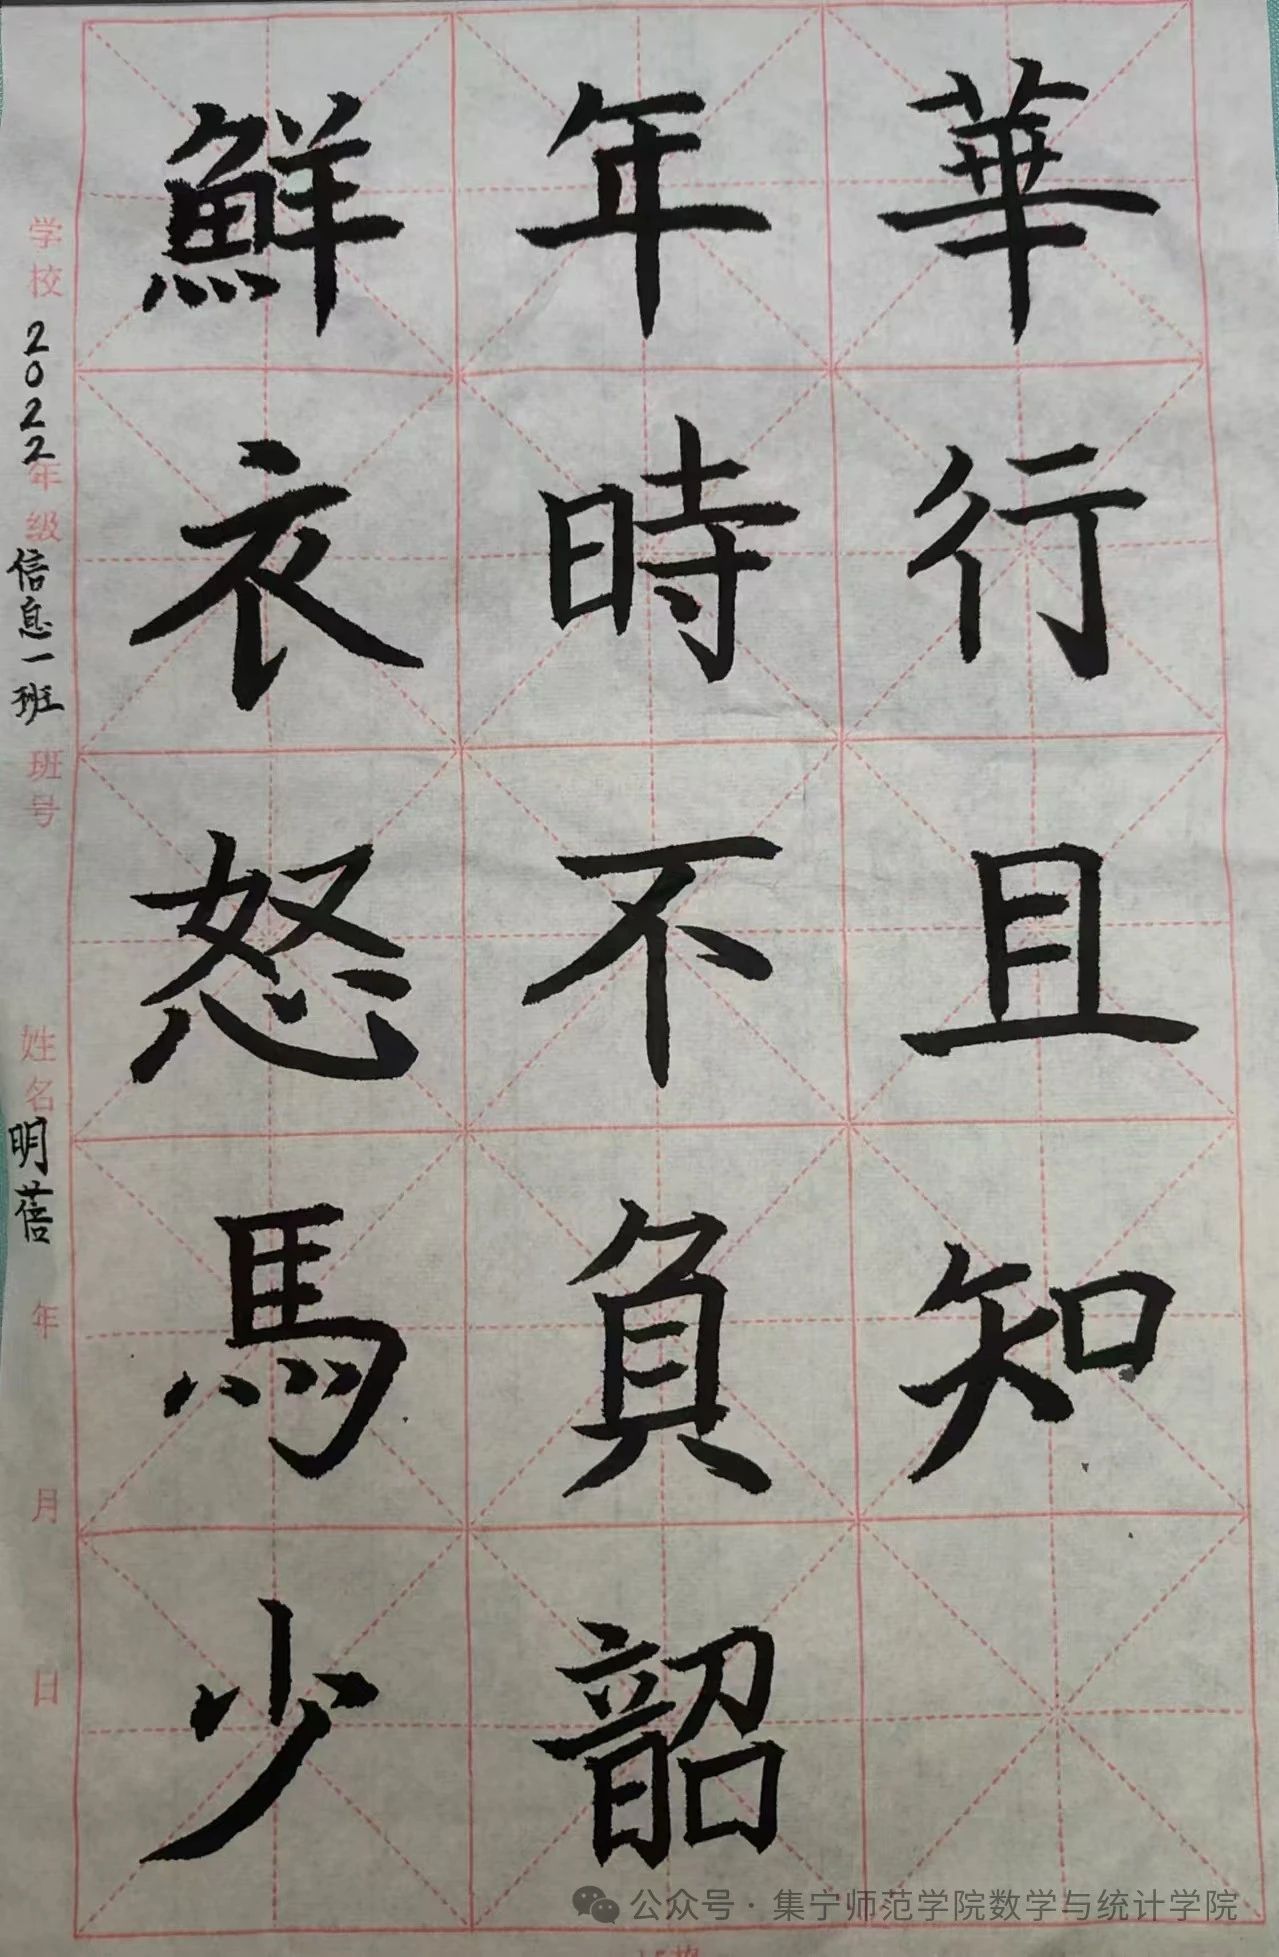 鮮衣怒馬少
年時不負韶
華行且知
学校 2022年级 信息一班 班号 姓名 明蓓 年 月 日
公众号·集宁师范学院数学与统计学院